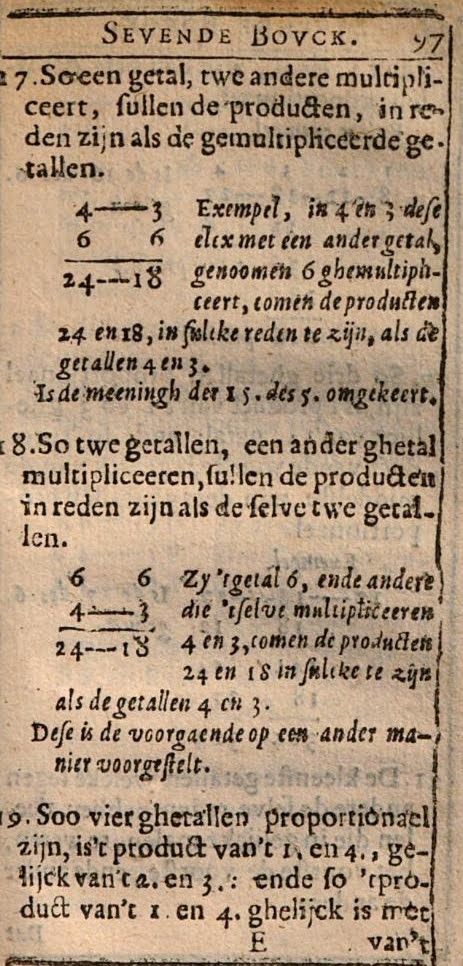 SEVENDE BOVCK. 97
17. So een getal, twe andere multipli-
ceert, sullen de producten, in re-
den zijn als de gemultipliceerde ge-
tallen.
4----3 Exempel, in 4 en 3 dese
6 6 elcx met een ander getal,
24---18 genoomen 6 ghemultipli-
ceert, comen de producten
24 en 18, in sulcke reden te zijn, als de
getallen 4 en 3.
Is de meeningh der 15. des 5. omgekeert.
18. So twe getallen, een ander ghetal
multipliceeren, sullen de producten
in reden zijn als de selve twe getal-
len.
6 6 Zy 'tgetal 6, ende andere
4----3 die 'tselve multipliceeren
24---18 4 en 3, comen de producten
24 en 18 in sulcke te zijn
als de getallen 4 en 3.
Dese is de voorgaende op een ander ma-
nier voorgestelt.
19. Soo vier ghetallen proportionael
zijn, is't product van't 1. en 4., ge-
lijck van't 2. en 3.: ende so 'tpro-
duct van't 1. en 4. ghelijck is met
E van't